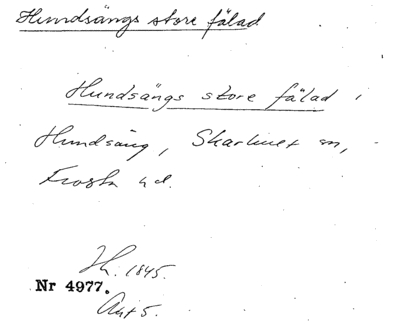 Hundsängs store fälad
Hundsängs store fälad i
Hundsäng, Skarhult sn,
Frosta hd.
H. 1845.
Nr 4977.
Akt 5.